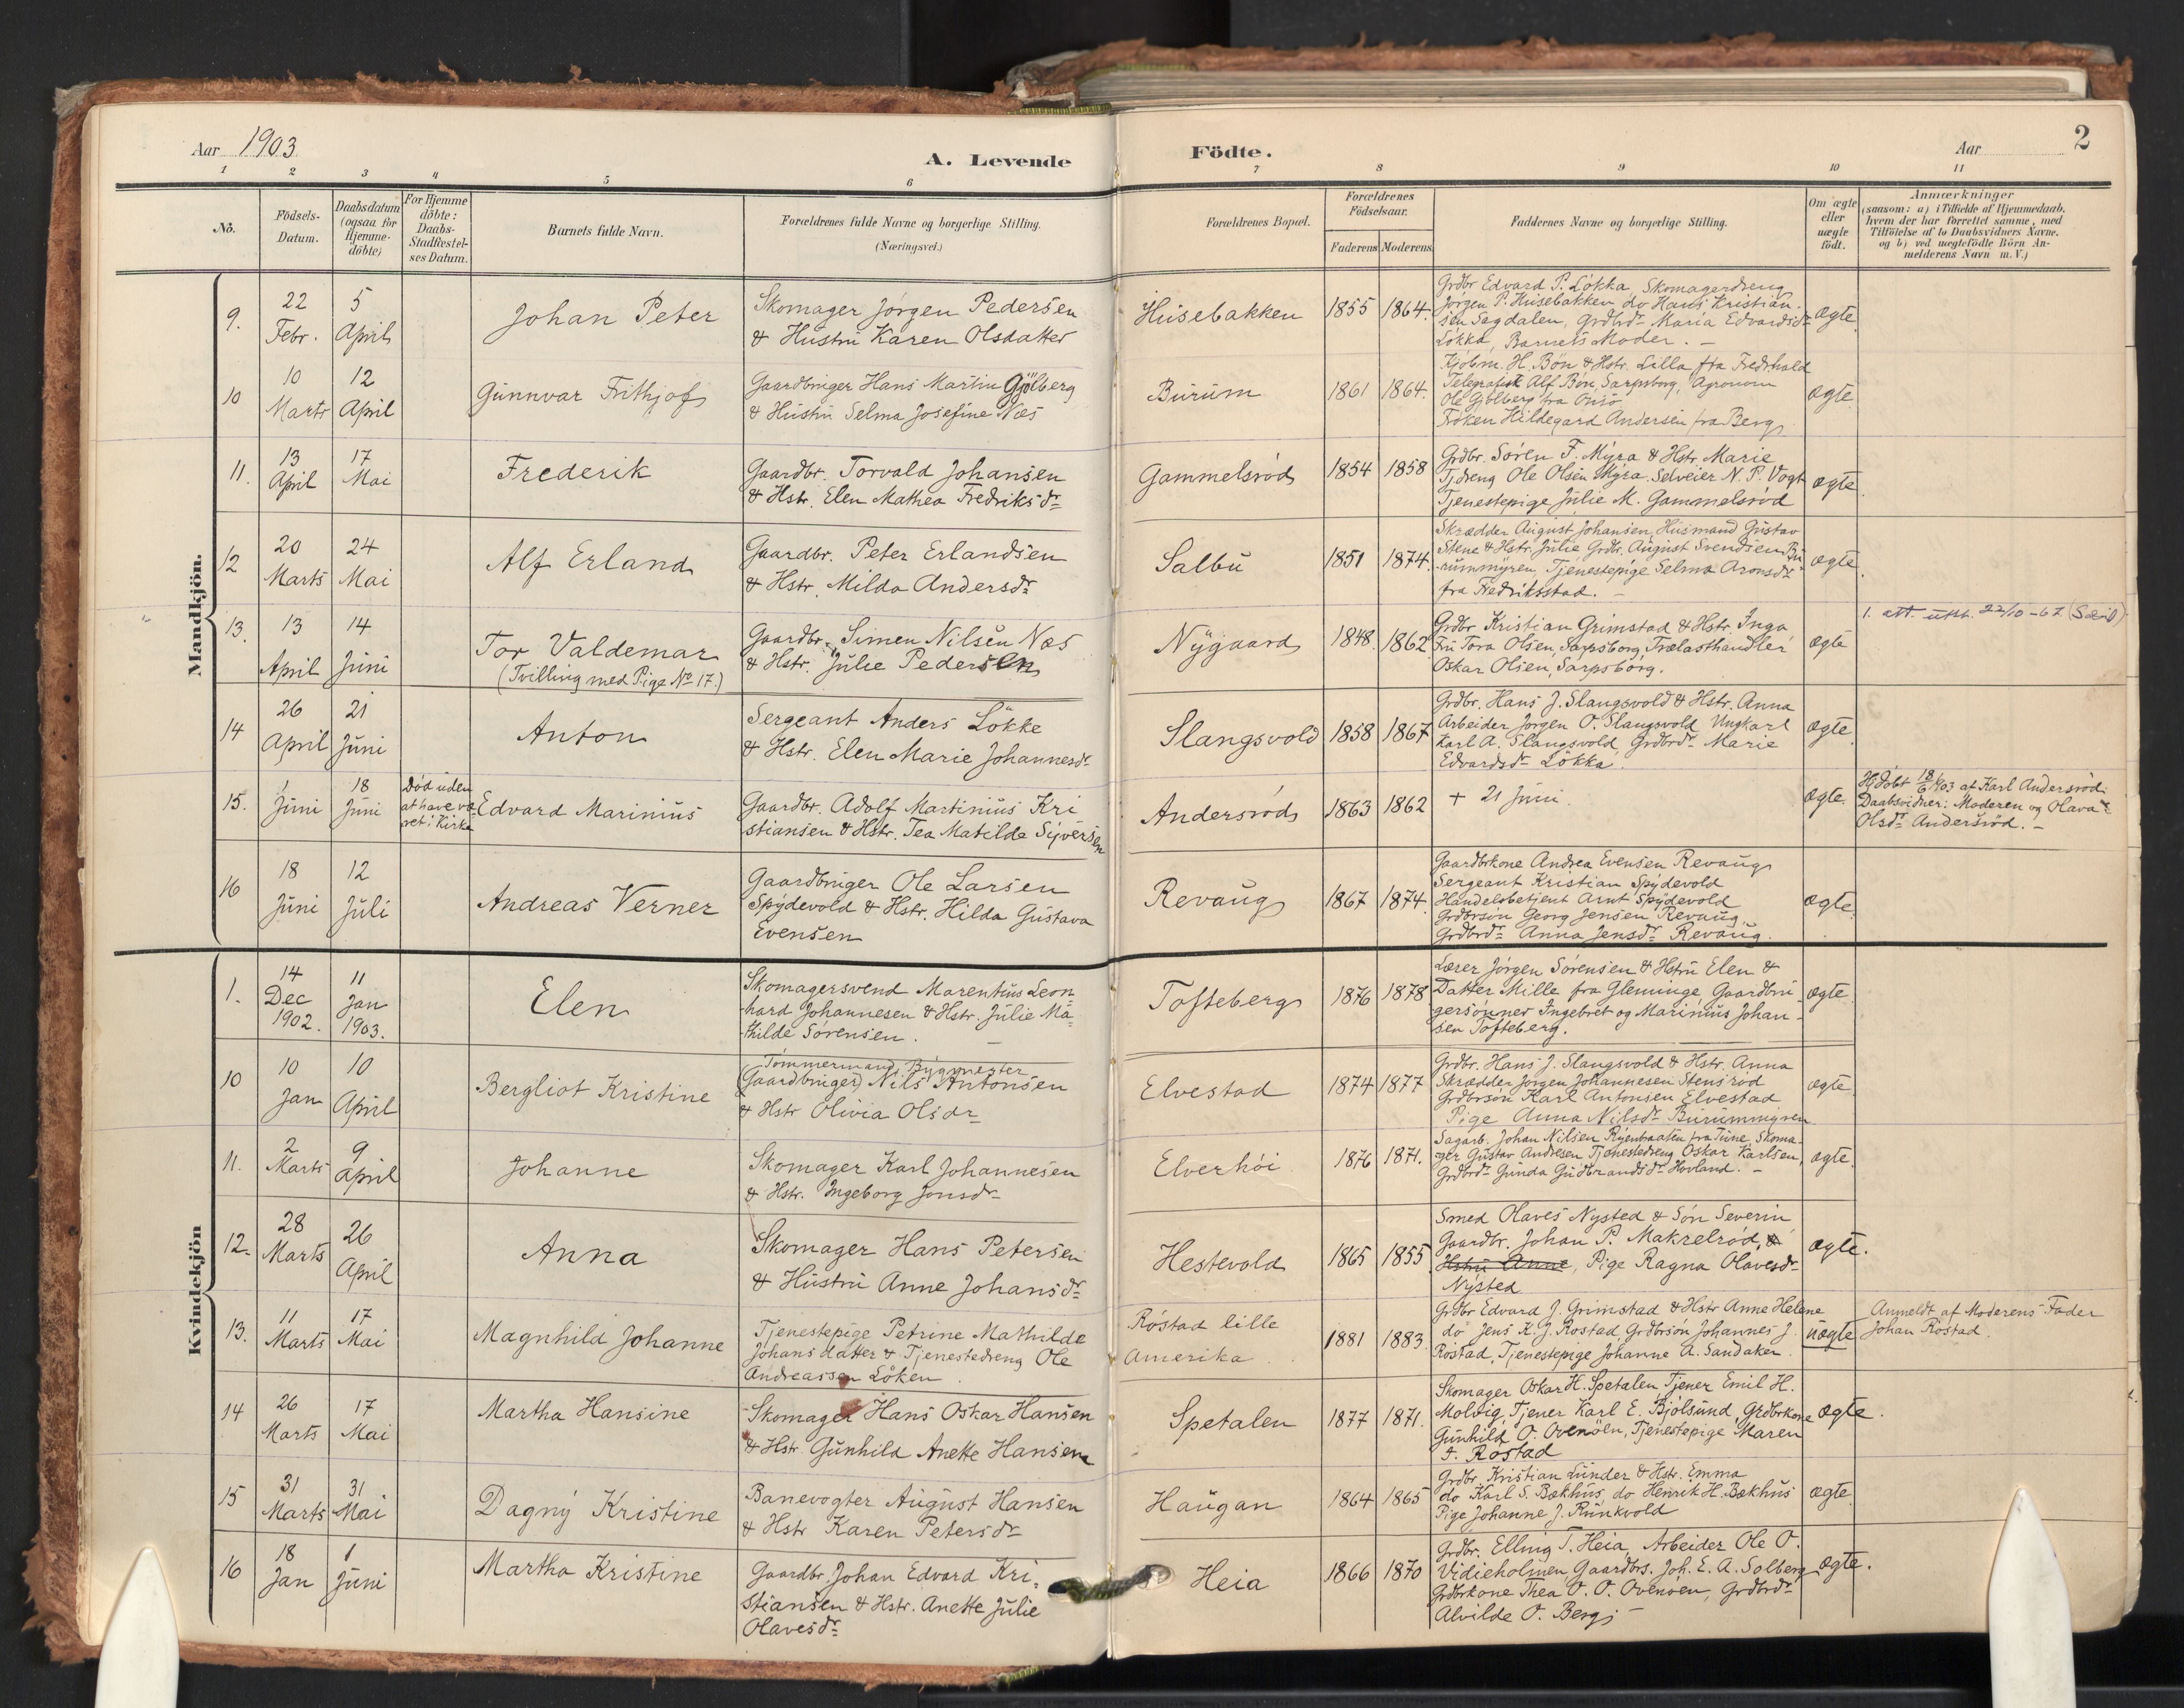 Aar 1903
A. Levende
Födte.
Aar
2
1 2 3 4 5 6 7 8 9 10 11
No.
Födsels-
Datum.
Daabsdatum
(ogsaa for
Hjemme-
döbte)
For Hjemme
döbte:
Daabs-
Stadfæstel-
ses Datum.
Barnets fulde Navn.
Forældrenes fulde Navne og borgerlige Stilling.
(Næringsvei.)
Forældrenes Bopæl.
Forældrenes
Födselsaar.
Faderens Moderens
Faddernes Navne og borgerlige Stilling.
Om ægte
eller
uægte
födt.
Anmærkninger
(saasom: a) i Tilfælde af Hjemmedaab,
hvem der har forrettet samme, med
Tilföielse af to Daabsvidners Navne.
og b) ved uægtefödte Börn An-
melderens Navn m.V.)
Mandkjön.
9.
22
Febr.
5
April
Johan Peter
Skomager Jörgen Pedersen
& Hustru Karen Olsdatter
Husebakken
1855 1864.
Grdbr Edvard P. Lökka, Skomagerdreng
Jörgen P. Husebakken, do Hans Kristian-
sen Segdalen, Grdbrdr Maria Edvardsdr
Lökka, Barnets Moder. –
ægte
10
10
Marts
12
April
Gunnvar Frithjof
Gaardbruger Hans Martin Gjölberg
& Hustru Selma Josefine Næs
Burum
1861 1864.
Kjöbm. H. Bön & Hstr. Lilla fra Fredrhald
Telegrafist Alf Bön, Sarpsborg, Agronom
Ole Gjölberg fra Onsö
Fröken Hildegard Andersen fra Berg
ægte
11.
13
April
17
Mai
Frederik
Gaardbr. Torvald Johansen
& Hstr. Elen Mathea Fredriksdr
Gammelsröd
1854 1858
Grdbr. Sören F. Myra & Hstr. Marie
Tjdreng Ole Olsen Myra. Selveier N. P. Vogt
Tjenestepige Julie M. Gammelsröd
ægte.
12
20
Marts
24
Mai
Alf Erland
Gaardbr. Peter Erlandsen
& Hstr. Milda Andersdr
Salbu
1851 1874.
Skrædder August Johansen, Husmand Gustav
Stene & Hstr. Julie Grdbr. August Svendsen Bu-
rummyren, Tjenestepige Selma Aronsdr
fra Fredriksstad. –
ægte.
13.
13
April
14
Juni
Tor Valdemar
(Tvilling med Pige No 17.)
Gaardbr. Simen Nilsen Næs
& Hstr. Julie Pedersen
Nygaard
1848. 1862
Grdbr Kristian Grimstad & Hstr. Inga
Fru Tora Olsen, Sarpsborg, Trælasthandler
Oskar Olsen, Sarpsborg.
ægte
1. att. utst. 22/10-67
14
26
April
21
Juni
Anton
Sergeant Anders Lökke
& Hstr. Elen Marie Johannesdr
Slangsvold
1858 1867
Grdbr. Hans J. Slangsvold & Hstr. Anna
Arbeider Jörgen O. Slangsvold, Ungkarl
Karl A. Slangsvold, Grdbrdr Marie
Edvardsdr Lökka.
ægte.
15.
1
Juni
18
Juni
Död uden
at have væ-
ret i Kirke
Edvard Marinius
Gaardbr. Adolf Martinius Kri
stiansen & Hstr. Tea Matilde Sijversen
Andersröd
1863 1862
+ 21 Juni.
ægte.
Hjdöbt 18/6 1903 af Karl Andersröd.
Daabsvidner: Moderen og Olava
Olsdr Andersröd. –
16
18
Juni
12
Juli
Andreas Verner
Gaardbruger Ole Larsen
Spydevold & Hstr. Hilda Gustava
Evensen
Revaug
1867 1874.
Gaardbrkone Andrea Evensen Revaug
Sergeant Kristian Spydevold
Handelsbetjent Arnt Spydevold
Grdbrsön Georg Jensen Revaug.
Grdbrdr Anna Jensdr Revaug.
ægte.
Kvindekjön
1.
14
Dec
1902.
11
Jan
1903.
Elen
Skomagersvend Marentius Leon-
hard Johannesen & Hstr. Julie Ma-
thilde Sörensen. –
Tofteberg
1876 1878
Lærer Jörgen Sörensen & Hstru Elen &
Datter Mille fra Glemminge, Gaardbru-
gersönner Ingebret og Marinius Johan-
sen Tofteberg.
ægte.
10
10
Jan
10
April
Bergliot Kristine
Tömmermand, Bygmester
(Gaardbruger) Nils Antonsen
& Hstr Olivia Olsdr
Elvestad
1874 1877
Grdbr. Hans J. Slangsvold & Hstr. Anna
Skrædder Jörgen Johannesen Stensröd
Grdbrsön Karl Antonsen Elvestad
Pige Anna Nilsdr Burummyren
ægte.
11.
2
Marts
9
April
Johanne
Skomager Karl Johannesen
& Hstr. Ingeborg Jonsdr
Elverhöi
1876 1871.
Sagarb. Johan Nilsen Ryenbaaten fra Tune, Skoma-
ger Gustav Andresen Tjenestedreng Oskar Karlsen,
Grdbrdr Gunda Gudbrandsdr Hovland. –
ægte.
12.
28
Marts
26
April
Anna
Skomager Hans Petersen
& Hustru Anne Johansdr
Hestevold
1865 1855
Smed Olaves Nysted & Sön Severin
Gaardbr. Johan P. Makrelröd, &
Hstru Anne, Pige Ragna Olavesdr
Nysted
ægte.
13.
11
Marts
17
Mai
Magnhild Johanne
Tjenestepige Petrine Mathilde
Johansdatter & Tjenestedreng Ole
Andreassen Löken.
Röstad lille
Amerika.
1881 1883.
Grdbr Edvard J. Grimstad & Hstr Anne Helene
do Jens K. J. Rostad, Grdbrsön Johannes J.
Röstad, Tjenestepige Johanne A. Sandaker.
uægte
Anmeldt af Moderens Fader
Johan Röstad.
14
26
Marts
17
Mai
Martha Hansine
Skomager Hans Oskar Hansen
& Hstr. Gunhild Anette Hansen
Spetalen
1877 1871.
Skomager Oskar H. Spetalen Tjener Emil H.
Molvig, Tjener Karl E. Bjölsund, Grdbrkone
Gunhild O. Ovenöen, Tjenestepige Maren
F. Rostad
ægte.
15
31
Marts
31
Mai
Dagny Kristine
Banevogter August Hansen
& Hstr Karen Petersdr
Haugan
1864 1865
Grdbr. Kristian Lunder & Hstr. Emma
do Karl S. Bækhus, do Henrik H. Bækhus
Pige Johanne J. Runkvold
ægte.
16
18
Jan
1
Juni
Martha Kristine
Gaardbr. Johan Edvard Kri-
stiansen & Hstr. Anette Julie
Olavesdr
Heia
1866 1870
Grdbr. Elling T. Heia, Arbeider Ole O.
Vidieholmen, Gaardbrs. Joh. E. A. Solberg
Grdbrkone Thea O. O. Ovenöen, Grdbrdr
Alvilde O. Berg. –
ægte.